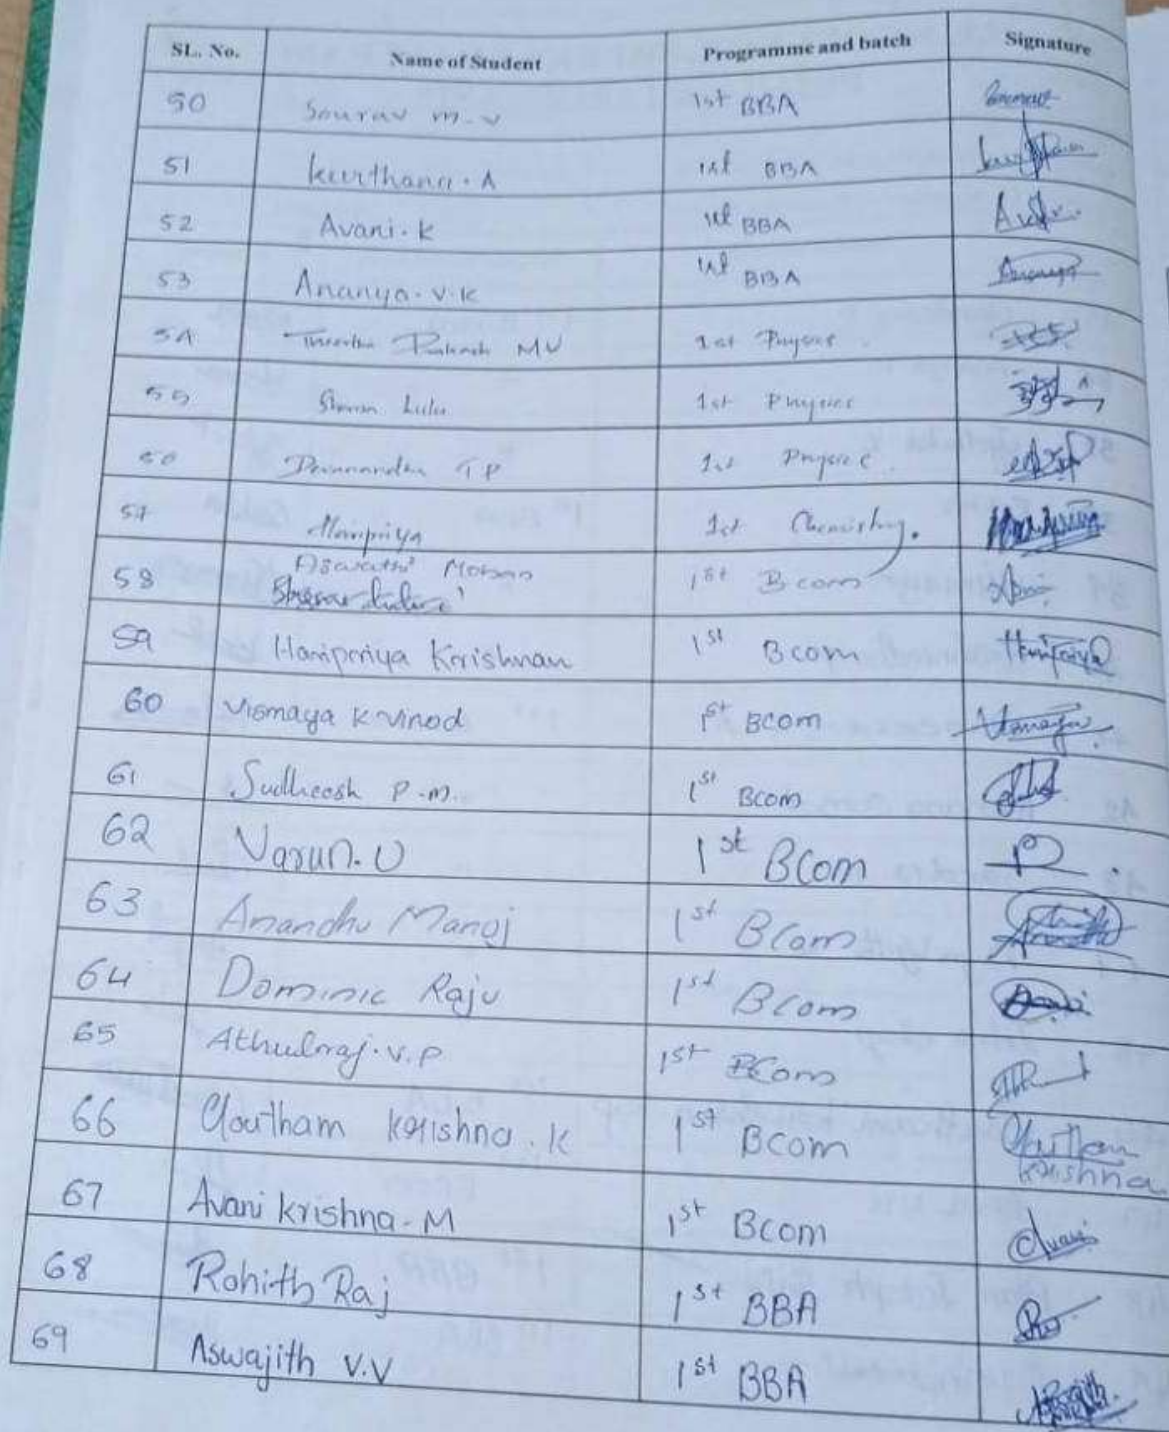 SL. No. Name of Student Programme and batch Signature
50 Sourav m.v 1st BBA
51 keerthana. A 1st BBA
52 Avani. k 1st BBA
53 Ananya. v.k 1st BBA
54 MV 1st Physics
55 Sharon Lulu 1st Physics
56 T P 1st Physics
57 Haripriya 1st Chemistry.
Aswathi Mohan
58 1st Bcom
59 Haripriya Krishnan 1st Bcom Haripriya
60 Vismaya k vinod 1st Bcom Vismaya
61 Sudheesh P.m. 1st Bcom
62 Varun. U 1st BCom
63 Anandhu Manoj 1st BCom
64 Dominic Raju 1st BCom
65 Athulraj. v. p 1st BCom
66 Goutham krishna. k 1st Bcom Goutham
krishna
67 Avani krishna. M 1st Bcom Avani
68 Rohith Raj 1st BBA
69 Aswajith V.V 1st BBA